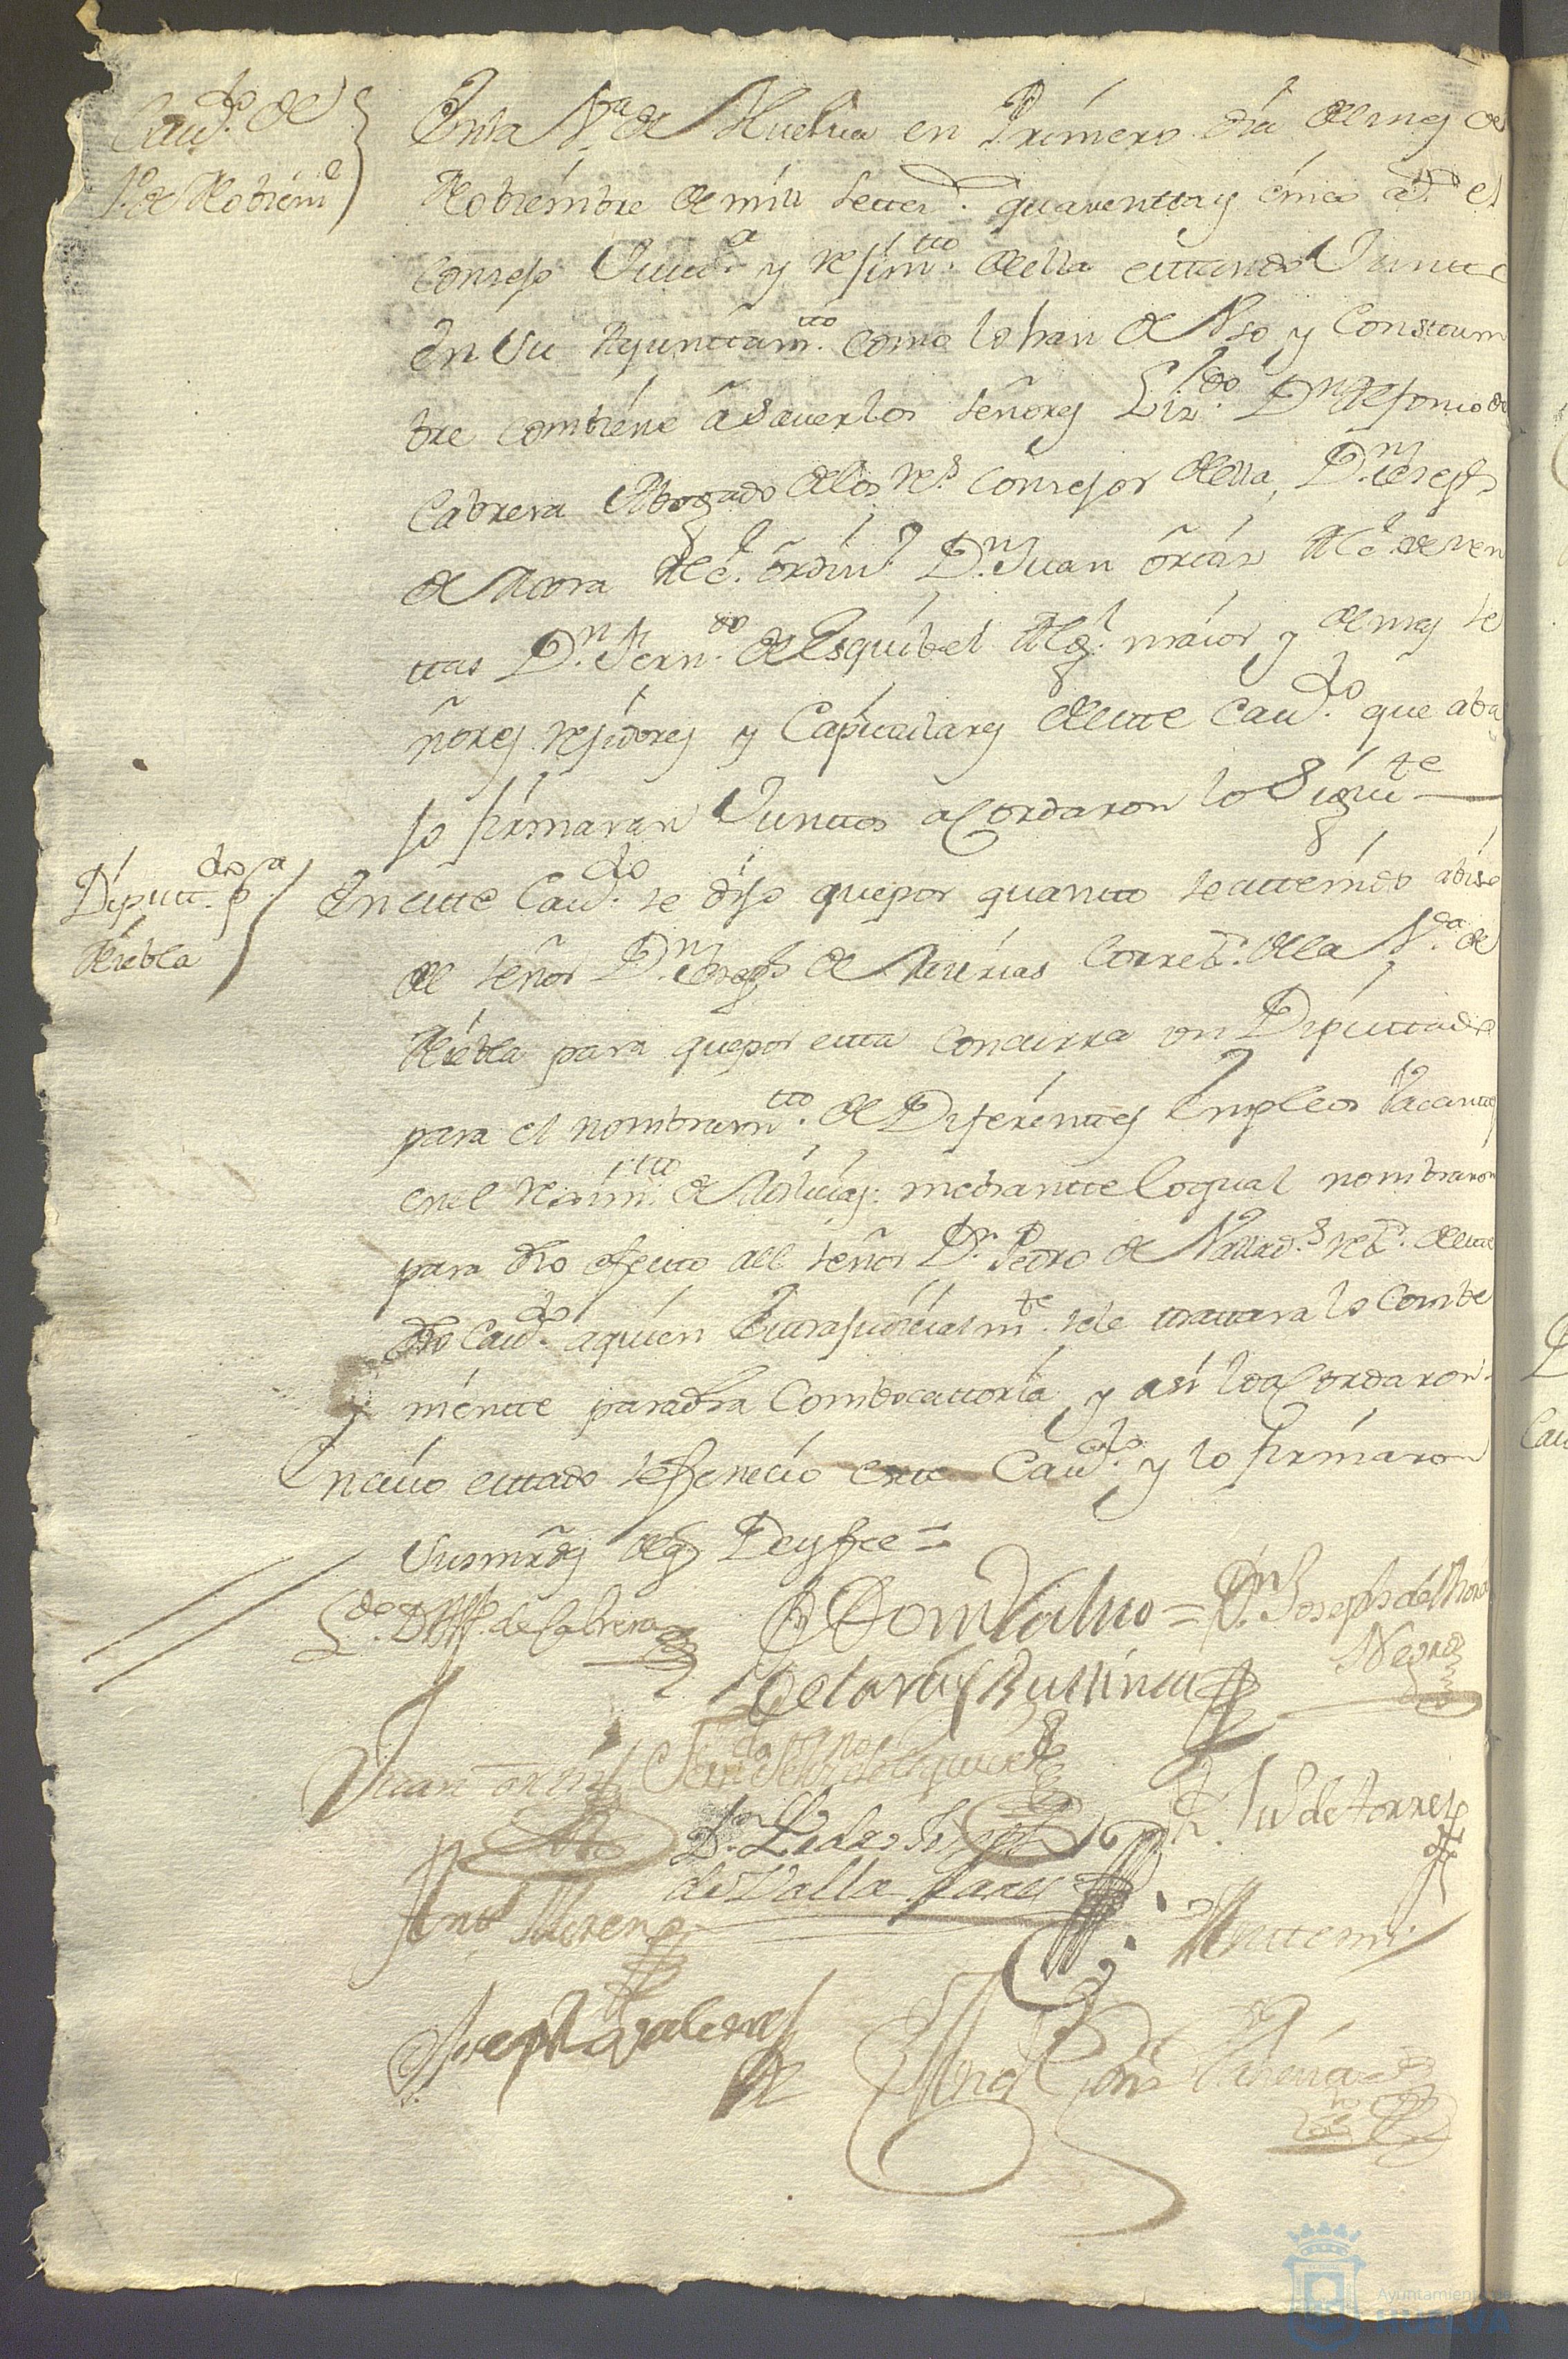 Caud.do de
1.o de Nobiem.e
En la V.a de Huelva en Primero dia del mes de
Nobiembre de mill settez.s quarentta y cinco a.s el
Consejo Justt.a y rejim.tto della esttando Juntto
en su Ayunttam.tto como lo han de Vso y Constum
bre combiene â saver los señores Liz.do D.n Ildefonso de
Cabrera Abogado de los r.s Consejos della, D.n Joseph
de Mora Alc.e ôrdin.o D.n Juan ôrtiz Alc.e de ren
ttas D.n Fern.do de Esquibel Alg.l maior y demas se
ñores rejidores y Capitulares deste Cau.do que aba
jo firmaran Junttos acordaron lo Siguí.te
Diputt.do p.a
Niebla
En estte Cau.do se dijo que por quantto se a ttenido abiso
del señor D.n Joseph de Correx.r de la V.a de
Niebla para que por estta Concurra un Diputtado
para el nombram.tto de Diferenttes Empleos Vacanttes
en el rejim.tto de mediantte lo qual nombraron
para dho efectto all señor D.n Pedro de Vallad.s rex.r destte
dho Cau.do a quien Exttrajudicialm.te se le ttrattara lo Combe
nientte para dha Combocattoria y asi lo acordaron.
En cuio esttado se fenecio este Cau.do y lo firmaron
Sus mrds de q Doy fee =
L.do D. Ilf. de Cabrera
= D.n Joseph de Mora
Negro
Juan ortiz
Fern.do de Esquivel
D.n Pedro Joseph
de Valladares
de torres
Ant.o Moreno
Antte mi
Joseph